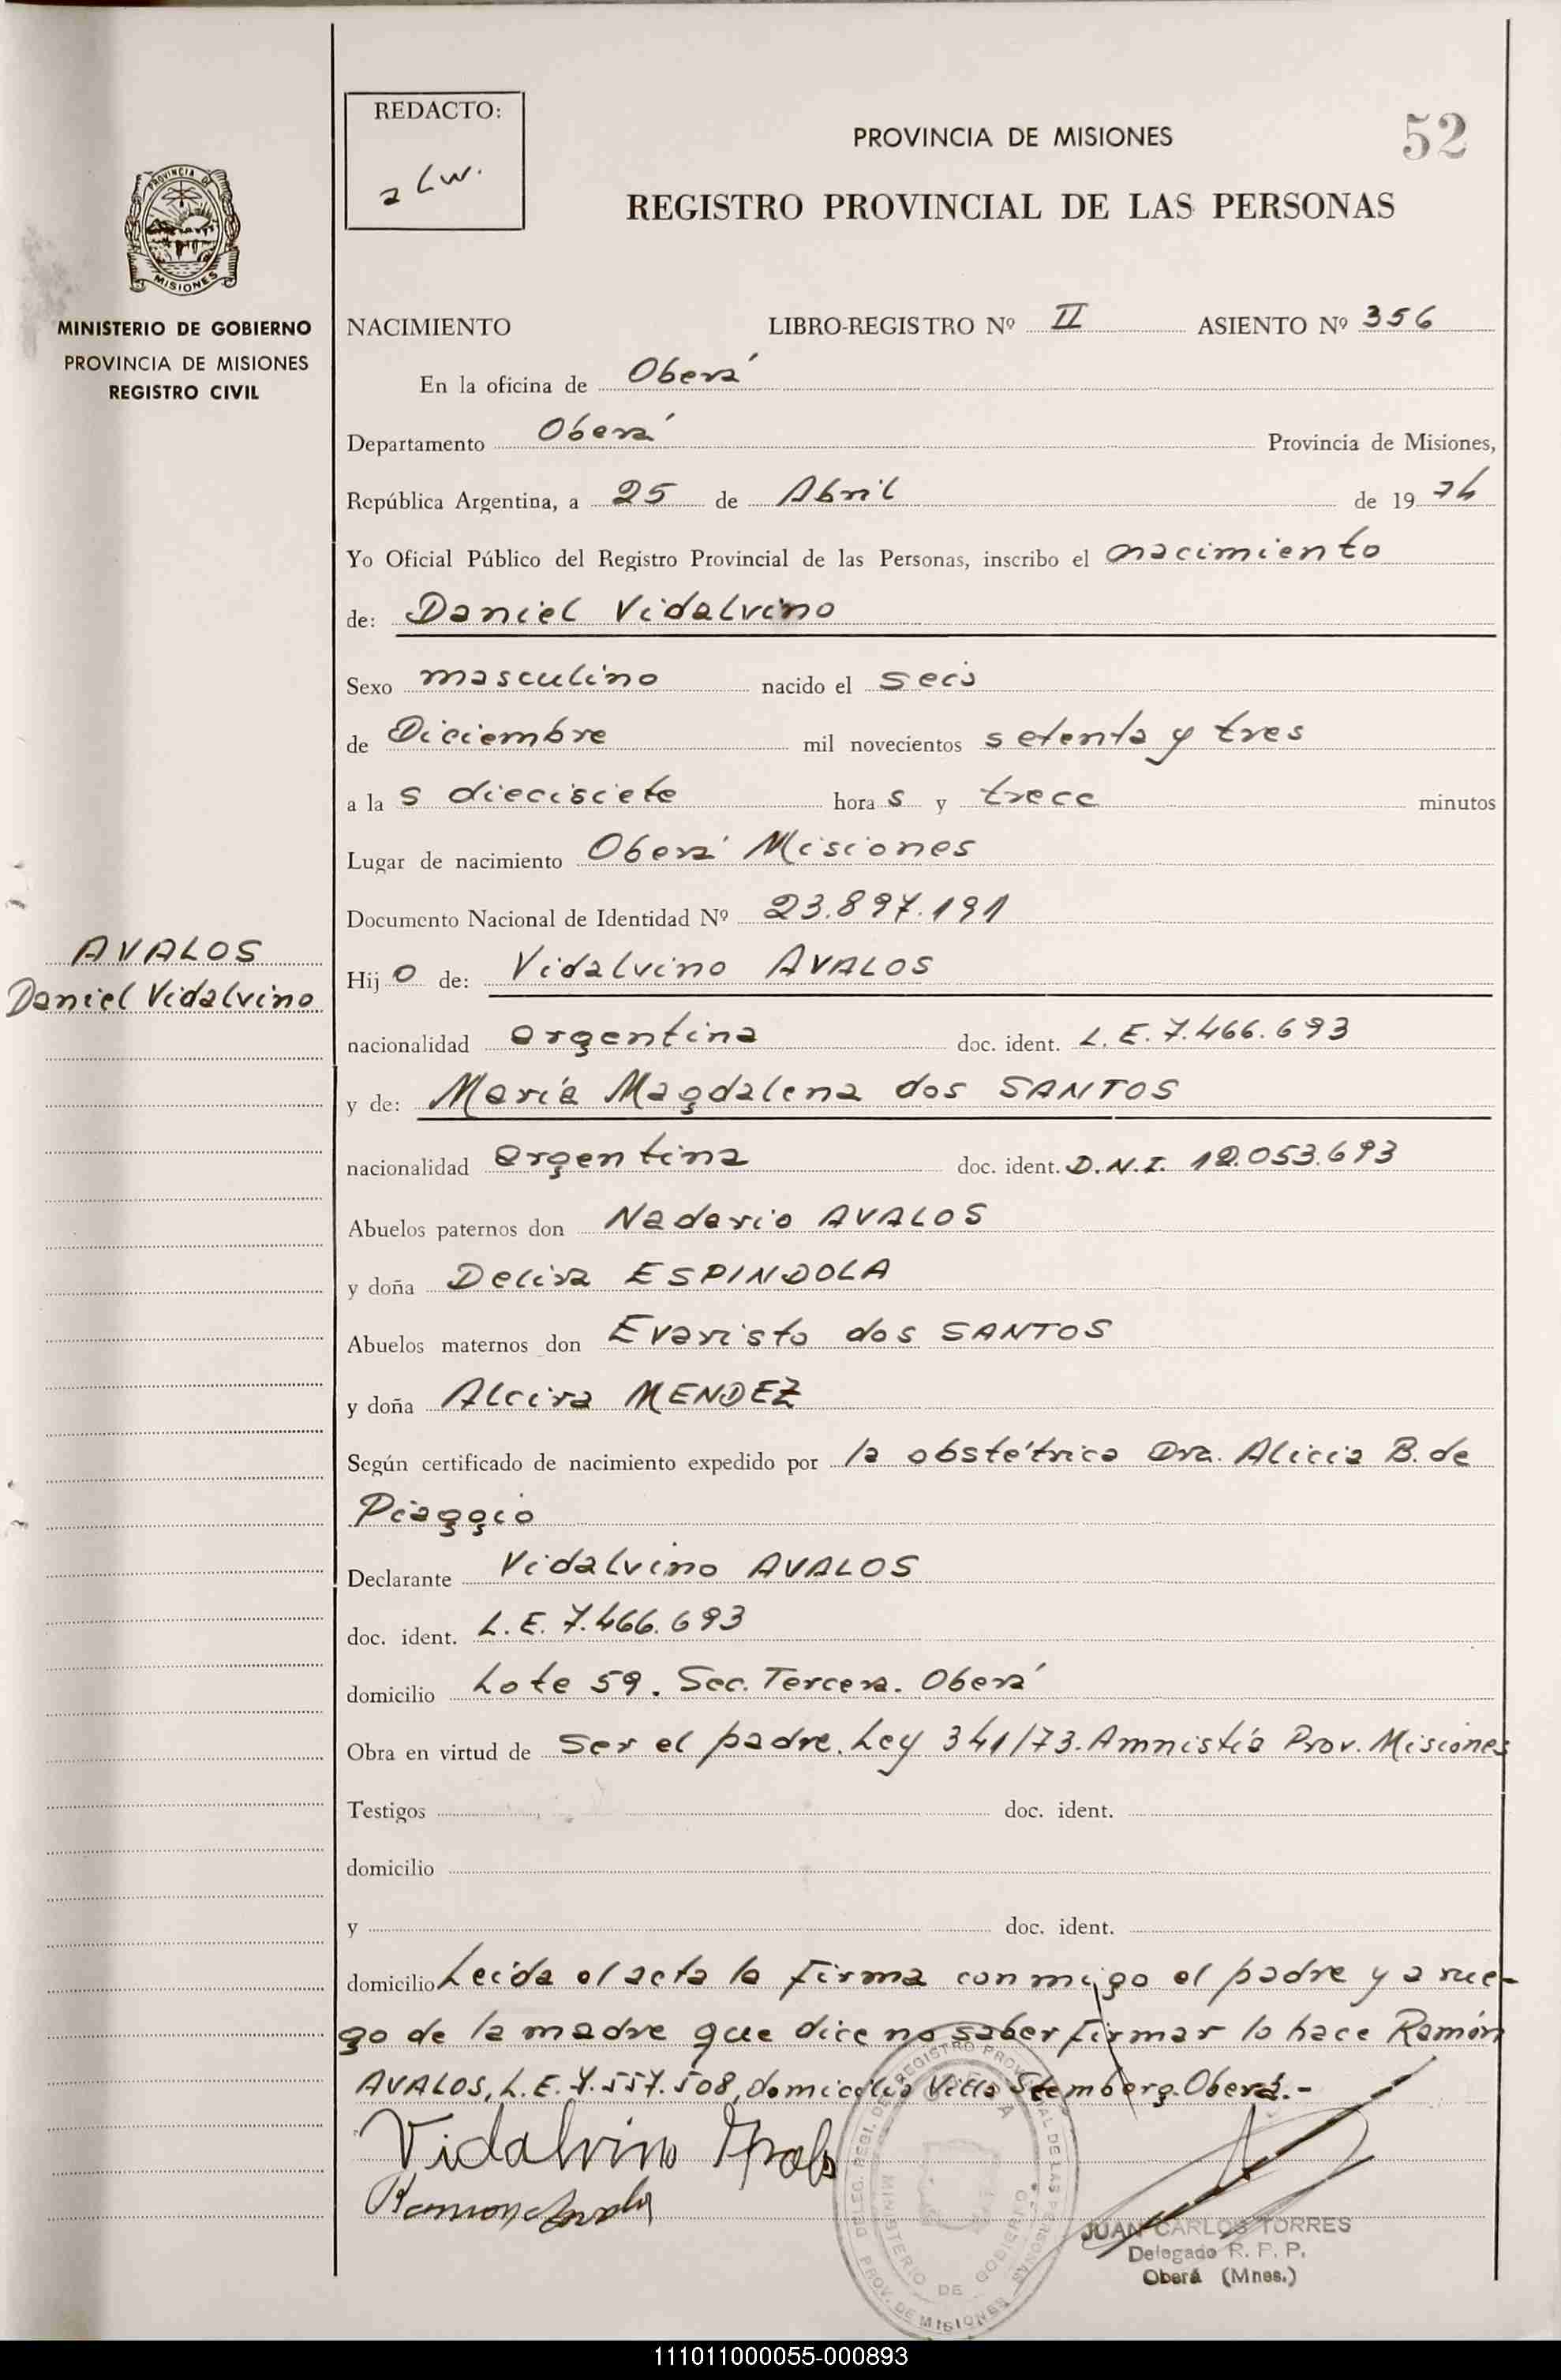 REDACTO:
PROVINCIA DE MISIONES
52
REGISTRO PROVINCIAL DE LAS PERSONAS
PROVINCIA DE
MISIONES
MINISTERIO DE GOBIERNO
PROVINCIA DE MISIONES
REGISTRO CIVIL
NACIMIENTO LIBRO-REGISTRO Nº II ASIENTO Nº 356
En la oficina de Oberá
Departamento Oberá Provincia de Misiones,
República Argentina, a 25 de Abril de 19 74
Yo Oficial Público del Registro Provincial de las Personas, inscribo el nacimiento
de: Daniel Vidalvino
Sexo masculino nacido el seis
de Diciembre mil novecientos setenta y tres
a la s diecisiete hora s y trece minutos
Lugar de nacimiento Oberá Misiones
Documento Nacional de Identidad Nº 23.897.191
AVALOS
Daniel Vidalvino
Hij o de: Vidalvino AVALOS
nacionalidad argentina doc. ident. L. E. 7.466.693
y de: María Magdalena dos SANTOS
nacionalidad argentina doc. ident. D.N.I. 12.053.693
Abuelos paternos don Nadario AVALOS
y doña Delira ESPINDOLA
Abuelos maternos don Evaristo dos SANTOS
y doña Alcira MENDEZ
Según certificado de nacimiento expedido por la obstétrica Dra. Alicia B. de
Piaggio
Declarante Vidalvino AVALOS
doc. ident. L. E. 7.466.693
domicilio Lote 59. Sec. Tercera. Oberá
Obra en virtud de ser el padre. Ley 341/73. Amnistía Prov. Misiones
Testigos doc. ident.
domicilio
y doc. ident.
domicilio Leída el acta la firma conmigo el padre y a rue-
go de la madre que dice no saber firmar lo hace Ramón
AVALOS, L. E. 7.557.508, domicilio Villa Stemberg. Oberá.-
Vidalvino Avalos
Ramon Avalos
DELEG. REGI. DEL REGISTRO PROVINCIAL DE LAS PERSONAS
MINISTERIO DE GOBIERNO
PROV. DE MISIONES
JUAN CARLOS TORRES
Delegado R. P. P.
Oberá (Mnes.)
111011000055-000893